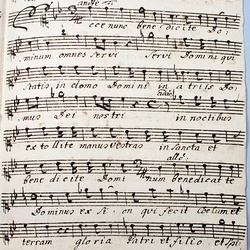 andte
cce nunc bene dicite Do:
minum omnes servi servi Domini qui
statis in domo Domini in atrijs Do:
mus Dei nostri in noctibus
extollite manus vestras in sancta et
allo
bene dicite Domi num benedicat te
Dominus ex Si: on qui fecit coelum et
terram gloria Patri et filio et Spi: